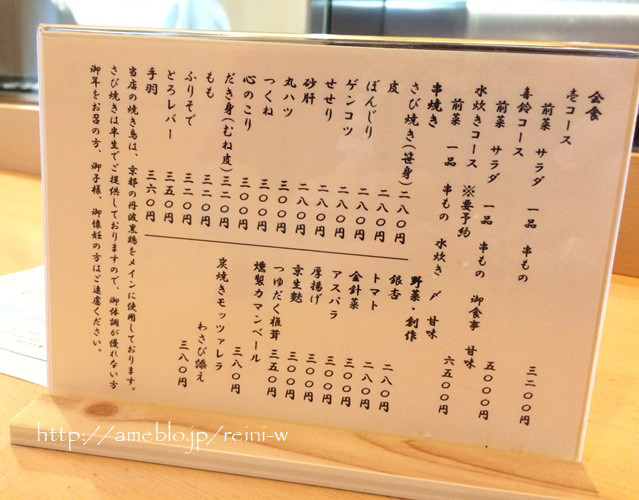 会食
壱コース
前菜 サラダ 一品 串もの 三二〇〇円
喜鈴コース
前菜 サラダ 一品 串もの 御食事 甘味 五〇〇〇円
水炊きコース ※要予約
前菜 一品 串もの 水炊き 〆 甘味 六五〇〇円
串焼き
さび焼き(笹身) 二八〇円
皮 二八〇円
ぼんじり 二八〇円
ゲンコツ 二八〇円
せせり 二八〇円
砂肝 二八〇円
丸ハツ 三〇〇円
つくね 三〇〇円
心のこり 三〇〇円
だき身(むね皮) 三二〇円
もも 三二〇円
ふりそで 三二〇円
とろレバー 三五〇円
手羽 三六〇円
野菜・創作
銀杏 二八〇円
トマト 二八〇円
金針菜 三〇〇円
アスパラ 三〇〇円
厚揚げ 三〇〇円
京生麩 三〇〇円
つゆだく椎茸 三五〇円
燻製カマンベール 三八〇円
炭焼きモッツァレラ
わさび添え 三八〇円
当店の焼き鳥は、京都の丹波黒鶏をメインに使用しております。
さび焼きは半生でご提供しておりますので、御体調が優れない方
御年をお召の方、御子様、御懐妊の方はご遠慮ください。
http://ameblo.jp/reini-w